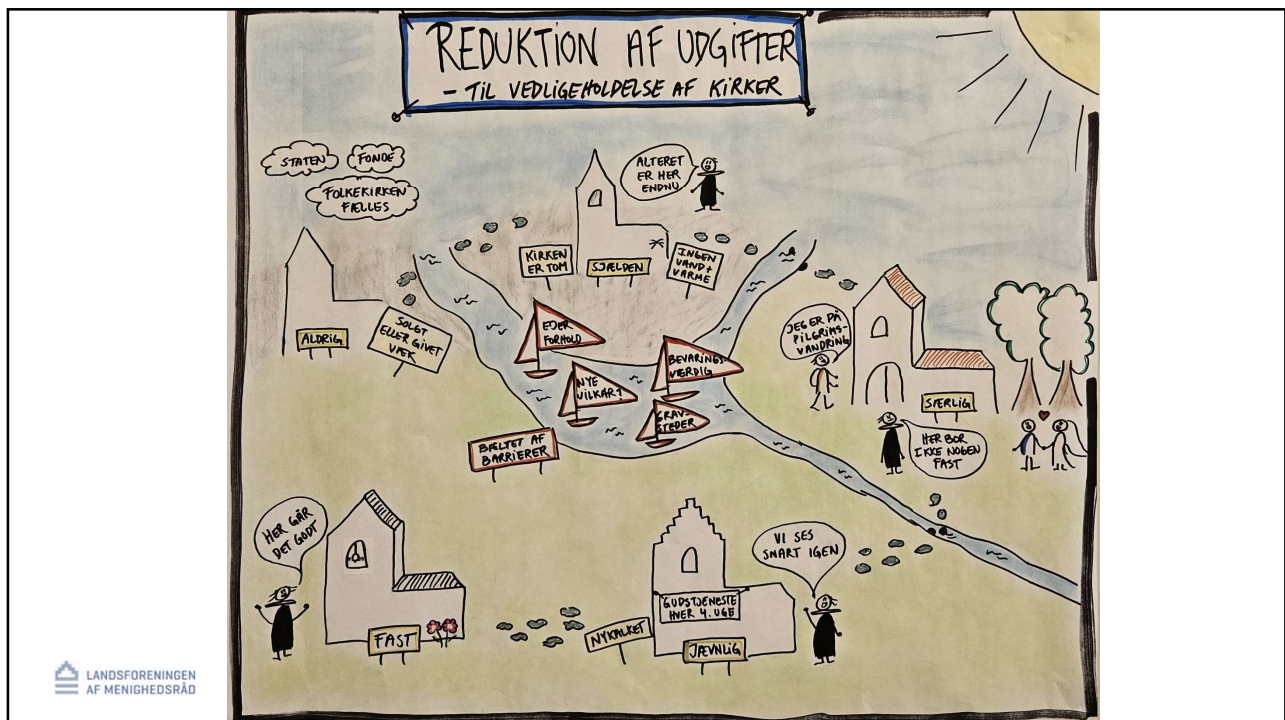 REDUKTION AF UDGIFTER
- TIL VEDLIGEHOLDELSE AF KIRKER
STATEN
FONDE
FOLKEKIRKEN
FÆLLES
ALTERET
ER HER
ENDNU
KIRKEN
ER TOM
SJÆLDEN
INGEN
VAND +
VARME
ALDRIG
SOLGT
ELLER GIVET
VÆK
EJER
FORHOLD
BEVARINGS-
VÆRDIG
NYE
VILKÅR?
GRAV-
STEDER
BÆLTET AF
BARRIERER
JEG ER PÅ
PILGRIMS-
VANDRING
SÆRLIG
HER BOR
IKKE NOGEN
FAST
HER GÅR
DET GODT
FAST
GUDSTJENESTE
HVER 4. UGE
NYKALKET
JÆVNLIG
VI SES
SNART IGEN
LANDSFORENINGEN
AF MENIGHEDSRÅD